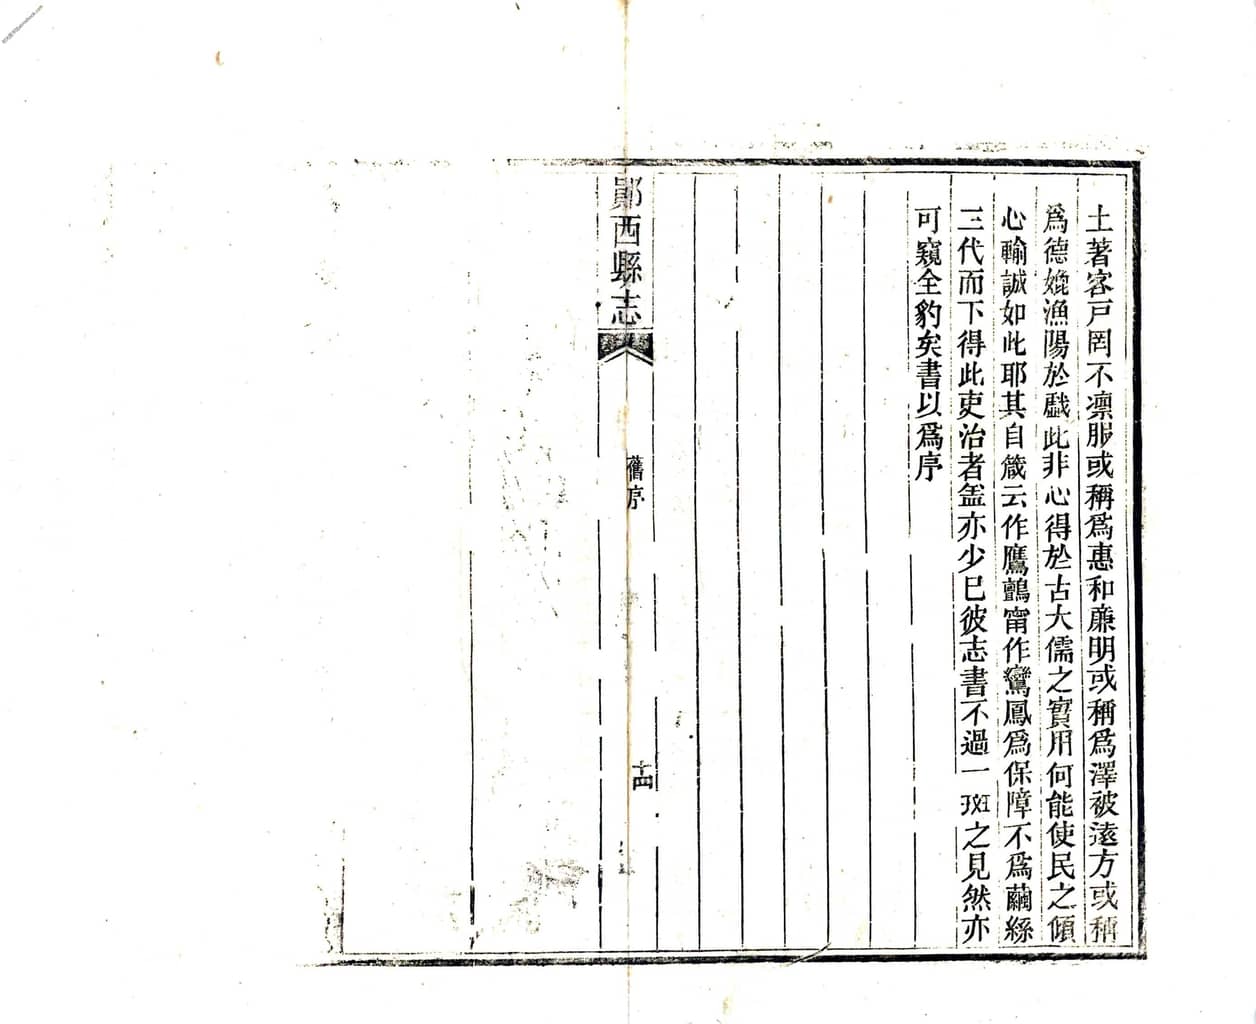 土著客戸罔不凛服或稱爲惠和亷明或稱爲澤被遠方或稱
爲德媲漁陽於戲此非心得於古大儒之實用何能使民之傾
心輸誠如此耶其自箴云作鷹鸇甯作鸞鳳爲保障不爲繭絲
三代而下得此吏治者盖亦少已彼志書不過一斑之見然亦
可窺全豹矣書以爲序
鄖西縣志
舊序
十四